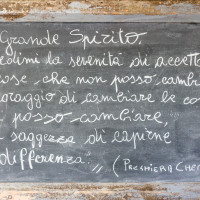 Grande Spirito,
edimi la serenità di accetta
ose che non posso cambi
oraggio di cambiare le co
posso cambiare,
saggezza di capirne
differenza."
(Preghiera Che